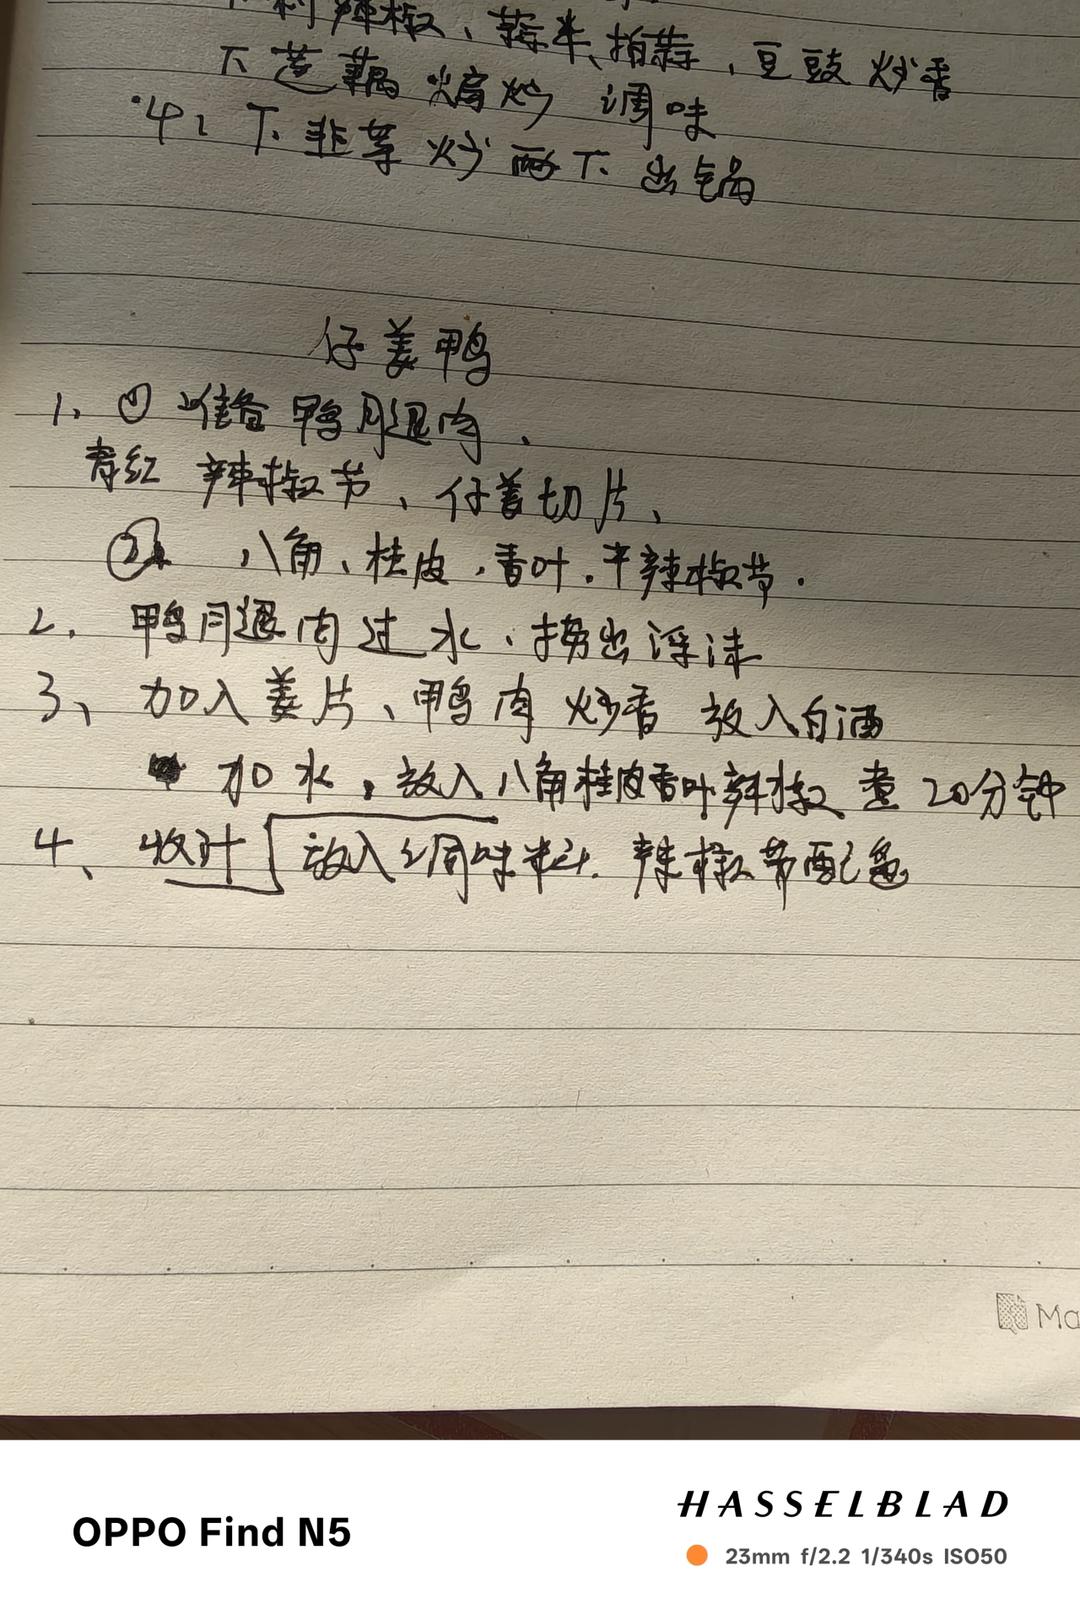 下 剁辣椒、蒜米、拍蒜，豆豉 炒香
下莲藕 煸炒 调味
4: 下韭菜 炒两下 出锅
仔姜鸭
1、① 准备 鸭腿肉、
青红 辣椒节、仔姜切片、
② 八角、桂皮，香叶．干辣椒节．
2. 鸭腿肉过水、捞出浮沫
3、加入姜片、鸭肉 炒香 放入白酒
加水，放入八角桂皮香叶辣椒 煮 20分钟
4、收汁 放入调味料．辣椒节配色
Ma
OPPO Find N5
HASSELBLAD
23mm f/2.2 1/340s ISO50